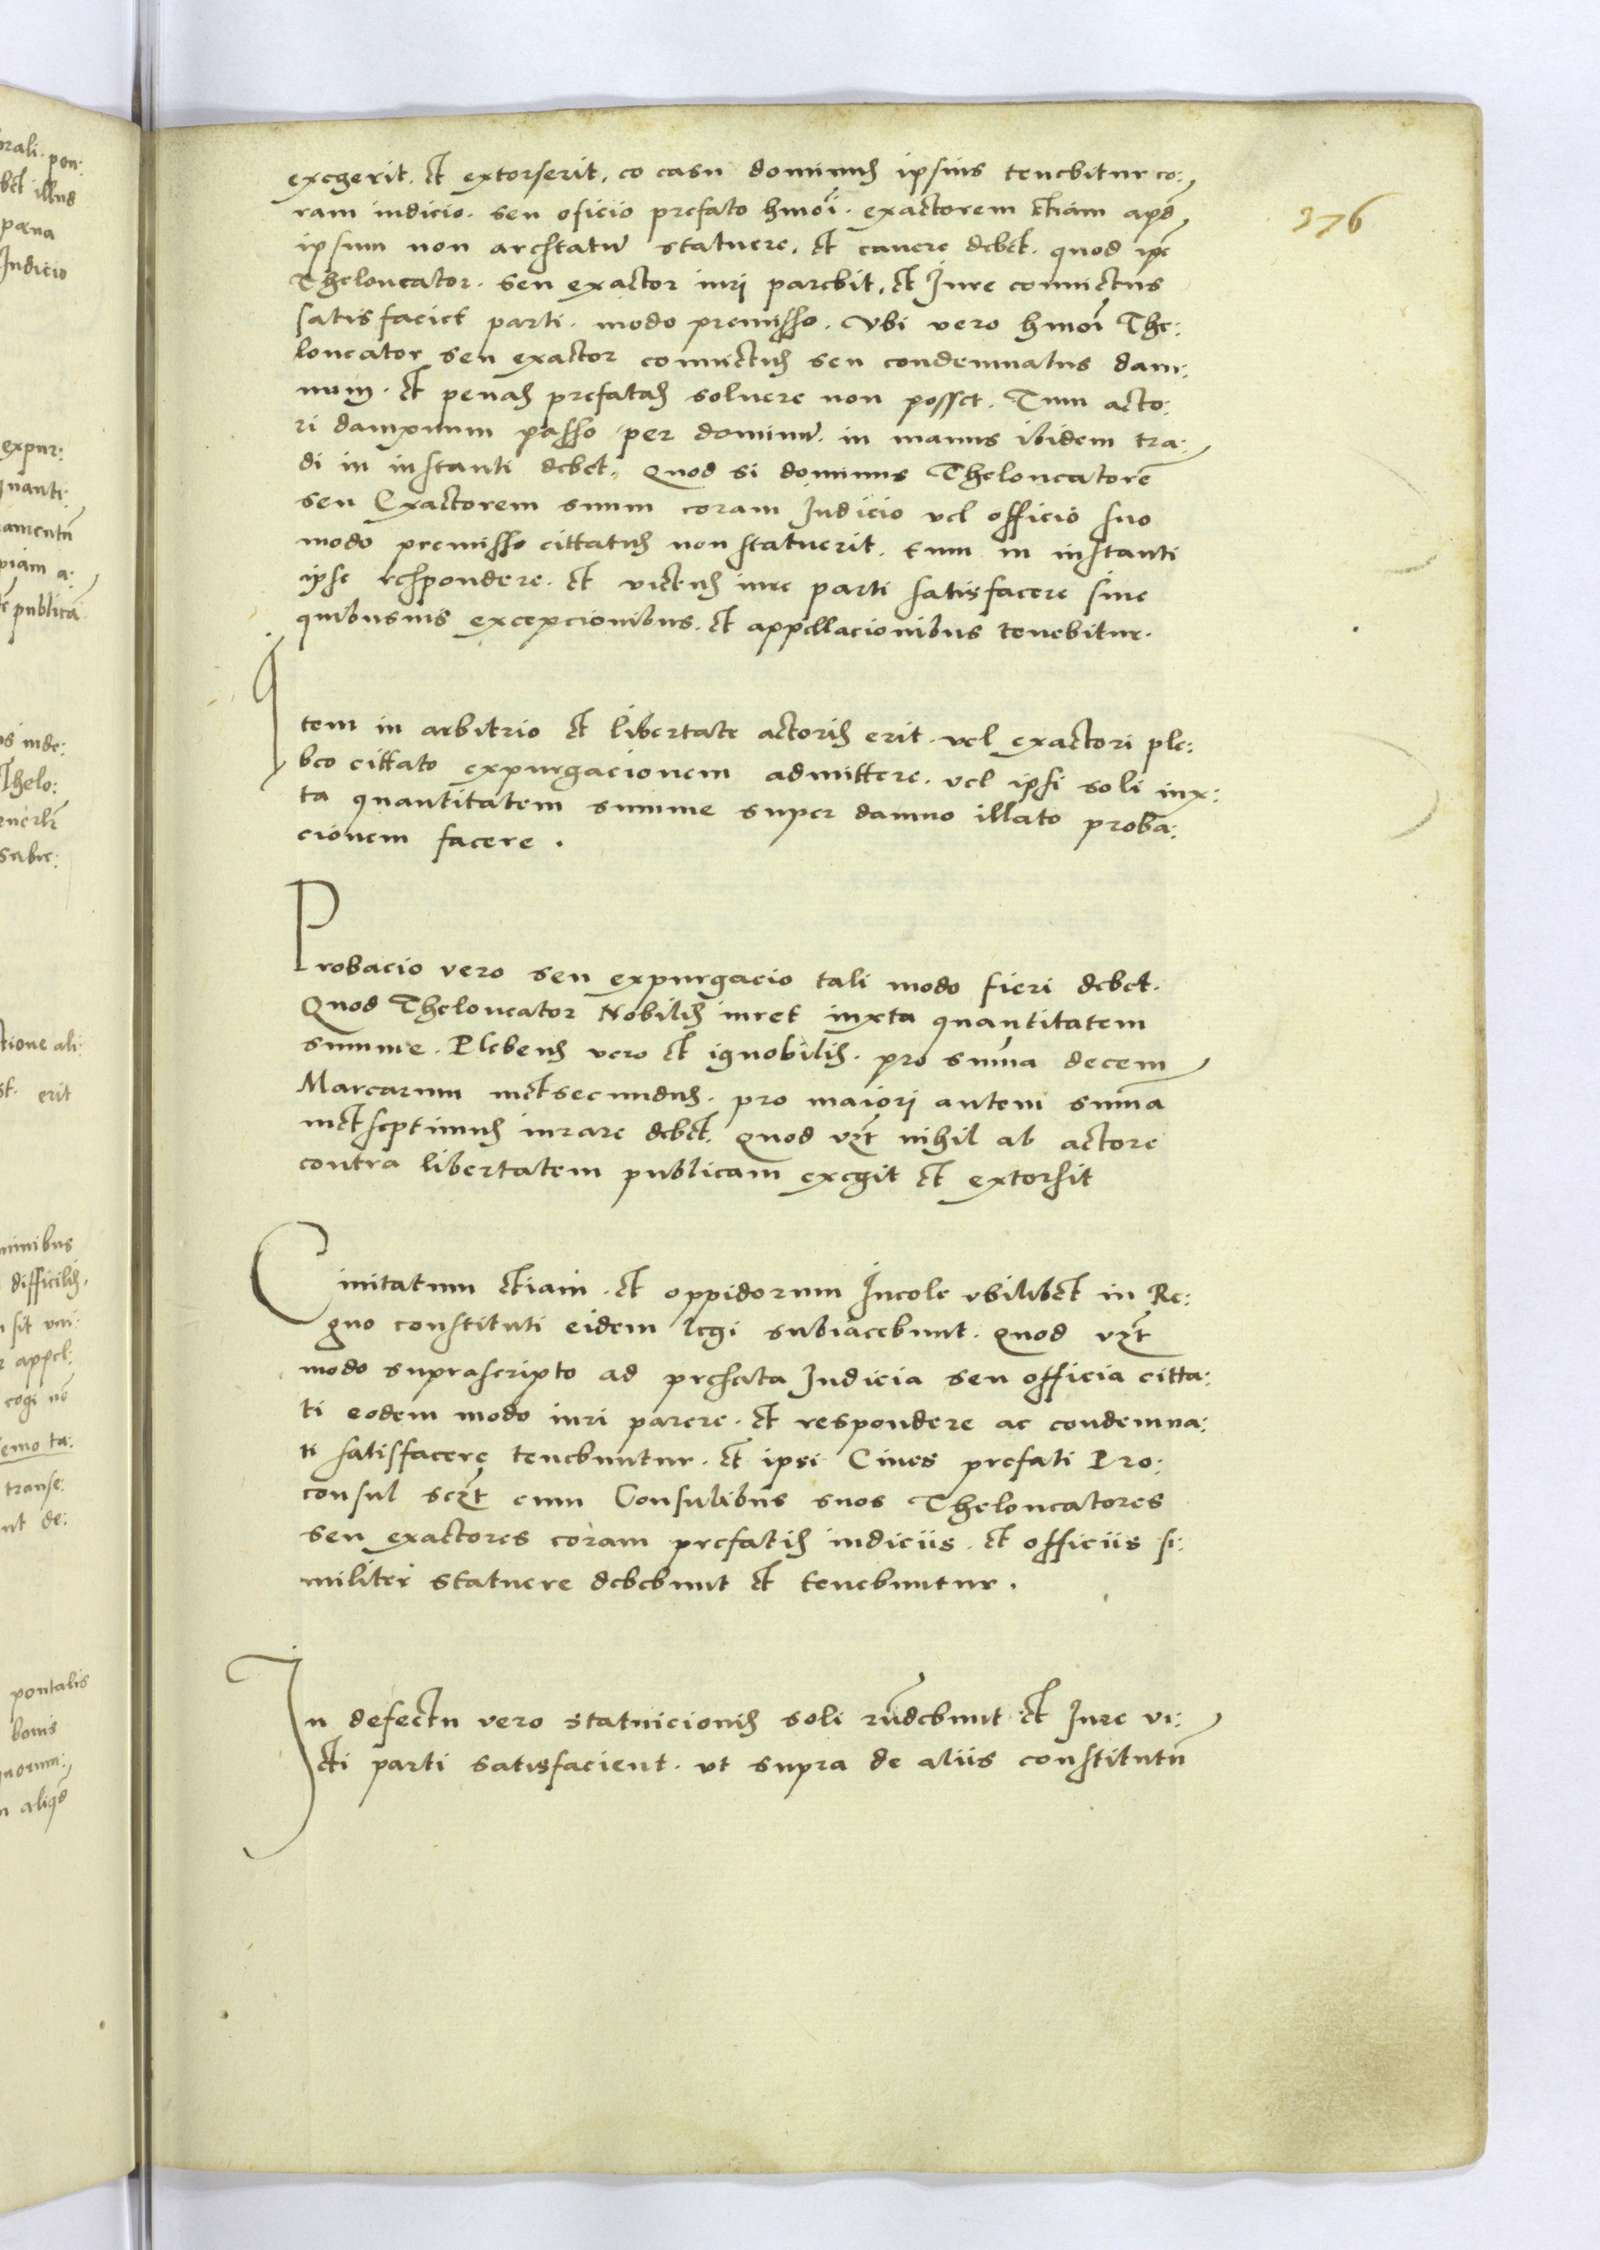 376
exegerit. et extorserit, eo casu dominus ipsius tenebitur co:
ram iudicio. seu oficio prefato hmoi. exactorem etiam apd
ipsum non arestatũ statuere, et cauere debet. quod ipe
Theloneator. seu exactor iuri parebit, et Iure conuictus
satisfaciet parti. modo premisso. Vbi vero hmoi The:
loneator seu exactor conuictus seu condemnatus dam:
num. et penas prefatas soluere non posset. Tum acto:
ri dampnum passo per dominũ. in manus ibidem tra:
di in instanti debet. Quod si dominus Theloneatorẽ
seu Exactorem suum coram Iudicio vel officio suo
modo premisso cittatus non statuerit. tum in instanti
ipse respondere. et victus iure parti satisfacere sine
quibusuis excepcionibus. et appellacionibus tenebitur.
Item in arbitrio et libertate actoris erit. vel exactori ple:
beo cittato expurgacionem admittere. vel ipsi soli iux:
ta quantitatem summe super damno illato proba:
cionem facere.
Probacio vero seu expurgacio tali modo fieri debet.
Quod Theloneator Nobilis iuret iuxta quantitatem
summe. Plebeus vero et ignobilis. pro sum̃a decem
Marcarum metsecundus. pro maiori autem sum̃a
metseptimus iurare debet. Quod vzt nihil ab actore
contra libertatem publicam exegit et extorsit
Ciuitatum etiam. et oppidorum Incole vbilibet in Re:
gno constituti eidem legi subiacebunt. Quod vzt
modo suprascripto ad prefata Iudicia seu officia citta:
ti eodem modo iuri parere. et respondere ac condemna:
ti satisfacere tenebuntur. et ipsi Ciues prefati Pro:
consul sczt cum Consulibus suos Theloneatores
seu exactores coram prefatis iudiciis. et officiis si:
militer statuere debebunt et tenebuntur.
In defectu vero statuicionis soli rñdebunt et Iure vi:
cti parti satisfacient. vt supra de aliis constitutũ